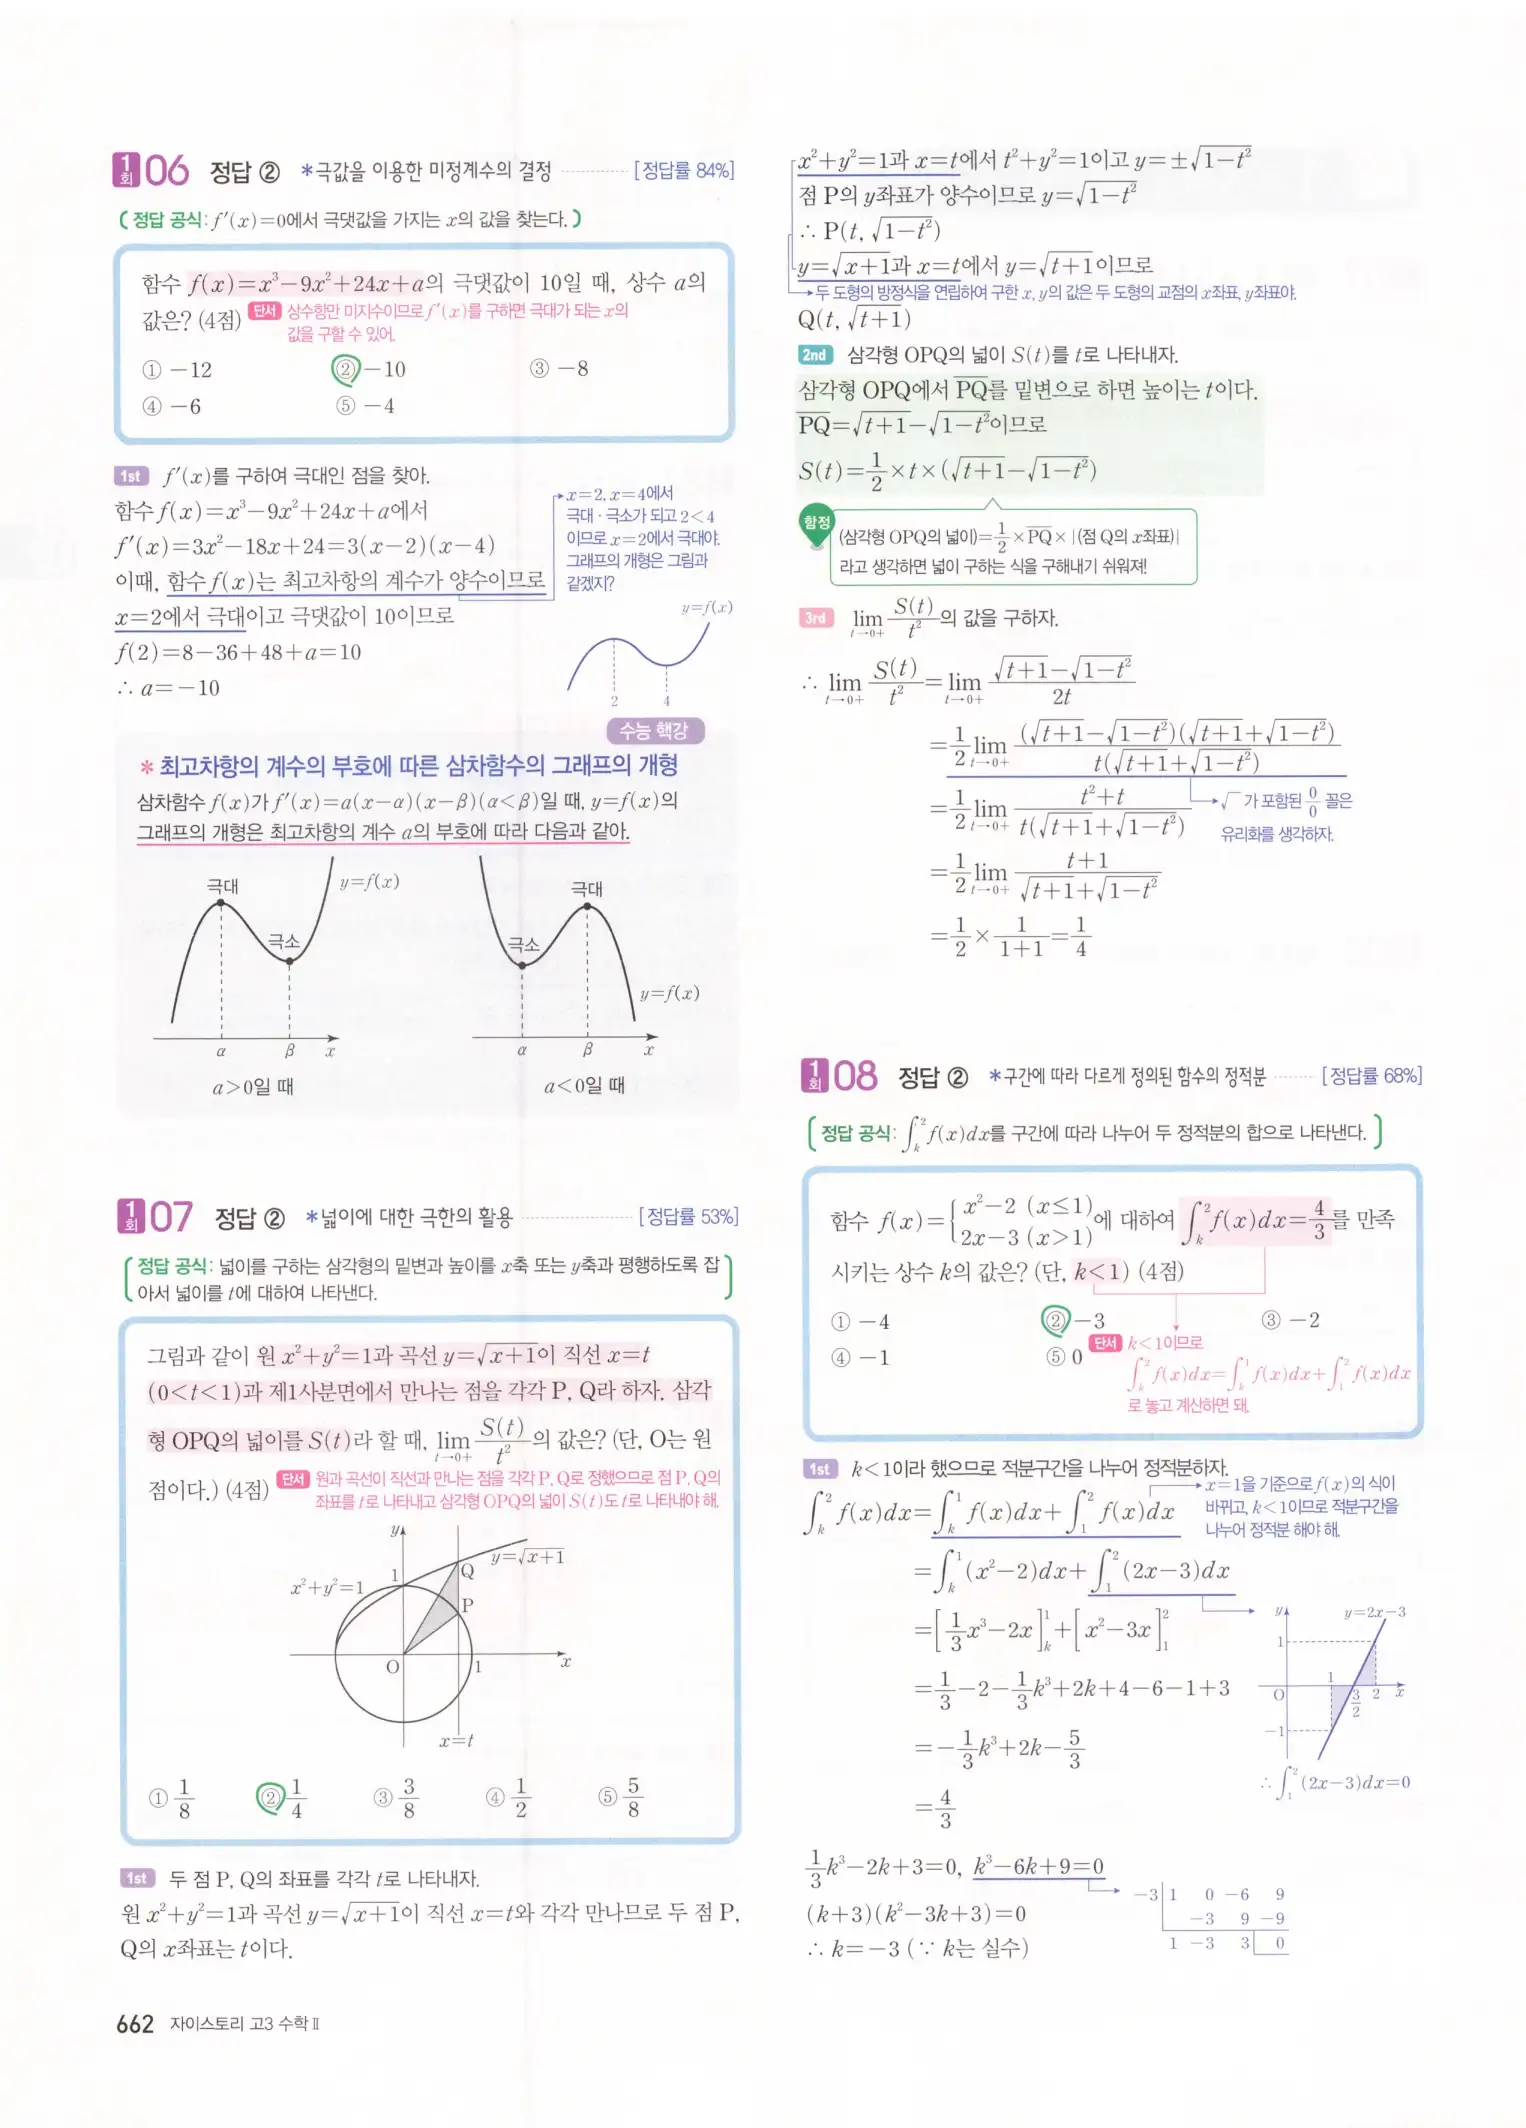 1회 06 정답 ② *극값을 이용한 미정계수의 결정 [정답률 84%]
( 정답 공식: f′(x)=0에서 극댓값을 가지는 x의 값을 찾는다. )
함수 f(x)=x³−9x²+24x+a의 극댓값이 10일 때, 상수 a의
값은? (4점) 단서 상수항만 미지수이므로 f′(x)를 구하면 극대가 되는 x의
값을 구할 수 있어.
① −12 ② −10 ③ −8
④ −6 ⑤ −4
1st f′(x)를 구하여 극대인 점을 찾아.
함수 f(x)=x³−9x²+24x+a에서
f′(x)=3x²−18x+24=3(x−2)(x−4)
이때, 함수 f(x)는 최고차항의 계수가 양수이므로
x=2에서 극대이고 극댓값이 10이므로
f(2)=8−36+48+a=10
∴ a=−10
x=2, x=4에서
극대·극소가 되고 2<4
이므로 x=2에서 극대야.
그래프의 개형은 그림과
같겠지?
y=f(x)
2 4
수능 핵강
* 최고차항의 계수의 부호에 따른 삼차함수의 그래프의 개형
삼차함수 f(x)가 f′(x)=a(x−α)(x−β)(α<β)일 때, y=f(x)의
그래프의 개형은 최고차항의 계수 a의 부호에 따라 다음과 같아.
극대 y=f(x) 극소
α β x
a>0일 때
극대 극소 y=f(x)
α β x
a<0일 때
1회 07 정답 ② *넓이에 대한 극한의 활용 [정답률 53%]
( 정답 공식: 넓이를 구하는 삼각형의 밑변과 높이를 x축 또는 y축과 평행하도록 잡
아서 넓이를 t에 대하여 나타낸다. )
그림과 같이 원 x²+y²=1과 곡선 y=√(x+1)이 직선 x=t
(0<t<1)과 제1사분면에서 만나는 점을 각각 P, Q라 하자. 삼각
형 OPQ의 넓이를 S(t)라 할 때, lim_{t→0+} S(t)/t²의 값은? (단, O는 원
점이다.) (4점) 단서 원과 곡선이 직선과 만나는 점을 각각 P, Q로 정했으므로 점 P, Q의
좌표를 t로 나타내고 삼각형 OPQ의 넓이 S(t)도 t로 나타내야 해.
y
y=√(x+1)
x²+y²=1 1 Q
P
O 1 x
x=t
① 1/8 ② 1/4 ③ 3/8 ④ 1/2 ⑤ 5/8
1st 두 점 P, Q의 좌표를 각각 t로 나타내자.
원 x²+y²=1과 곡선 y=√(x+1)이 직선 x=t와 각각 만나므로 두 점 P,
Q의 x좌표는 t이다.
x²+y²=1과 x=t에서 t²+y²=1이고 y=±√(1−t²)
점 P의 y좌표가 양수이므로 y=√(1−t²)
∴ P(t, √(1−t²))
y=√(x+1)과 x=t에서 y=√(t+1)이므로
두 도형의 방정식을 연립하여 구한 x, y의 값은 두 도형의 교점의 x좌표, y좌표야.
Q(t, √(t+1))
2nd 삼각형 OPQ의 넓이 S(t)를 t로 나타내자.
삼각형 OPQ에서 PQ를 밑변으로 하면 높이는 t이다.
PQ=√(t+1)−√(1−t²)이므로
S(t)=1/2×t×(√(t+1)−√(1−t²))
함정
(삼각형 OPQ의 넓이)=1/2×PQ×|(점 Q의 x좌표)|
라고 생각하면 넓이 구하는 식을 구해내기 쉬워져!
3rd lim_{t→0+} S(t)/t²의 값을 구하자.
∴ lim_{t→0+} S(t)/t²=lim_{t→0+} (√(t+1)−√(1−t²))/2t
=1/2 lim_{t→0+} (√(t+1)−√(1−t²))(√(t+1)+√(1−t²))/t(√(t+1)+√(1−t²))
=1/2 lim_{t→0+} (t²+t)/t(√(t+1)+√(1−t²))
√ 가 포함된 0/0 꼴은
유리화를 생각하자.
=1/2 lim_{t→0+} (t+1)/(√(t+1)+√(1−t²))
=1/2×1/(1+1)=1/4
1회 08 정답 ② *구간에 따라 다르게 정의된 함수의 정적분 [정답률 68%]
( 정답 공식: ∫_k^2 f(x)dx를 구간에 따라 나누어 두 정적분의 합으로 나타낸다. )
함수 f(x)={ x²−2 (x≤1) 2x−3 (x>1) 에 대하여 ∫_k^2 f(x)dx=4/3를 만족
시키는 상수 k의 값은? (단, k<1) (4점)
① −4 ② −3 ③ −2
④ −1 ⑤ 0
단서 k<1이므로
∫_k^2 f(x)dx=∫_k^1 f(x)dx+∫_1^2 f(x)dx
로 놓고 계산하면 돼.
1st k<1이라 했으므로 적분구간을 나누어 정적분하자.
∫_k^2 f(x)dx=∫_k^1 f(x)dx+∫_1^2 f(x)dx
x=1을 기준으로 f(x)의 식이
바뀌고, k<1이므로 적분구간을
나누어 정적분 해야 해.
=∫_k^1 (x²−2)dx+∫_1^2 (2x−3)dx
=[1/3x³−2x]_k^1+[x²−3x]_1^2
=1/3−2−1/3k³+2k+4−6−1+3
=−1/3k³+2k−5/3
=4/3
y y=2x−3
1
1
O 3/2 2 x
−1
∴ ∫_1^2 (2x−3)dx=0
1/3k³−2k+3=0, k³−6k+9=0
(k+3)(k²−3k+3)=0
∴ k=−3 (∵ k는 실수)
−3 1 0 −6 9
−3 9 −9
1 −3 3 0
662 자이스토리 고3 수학Ⅱ